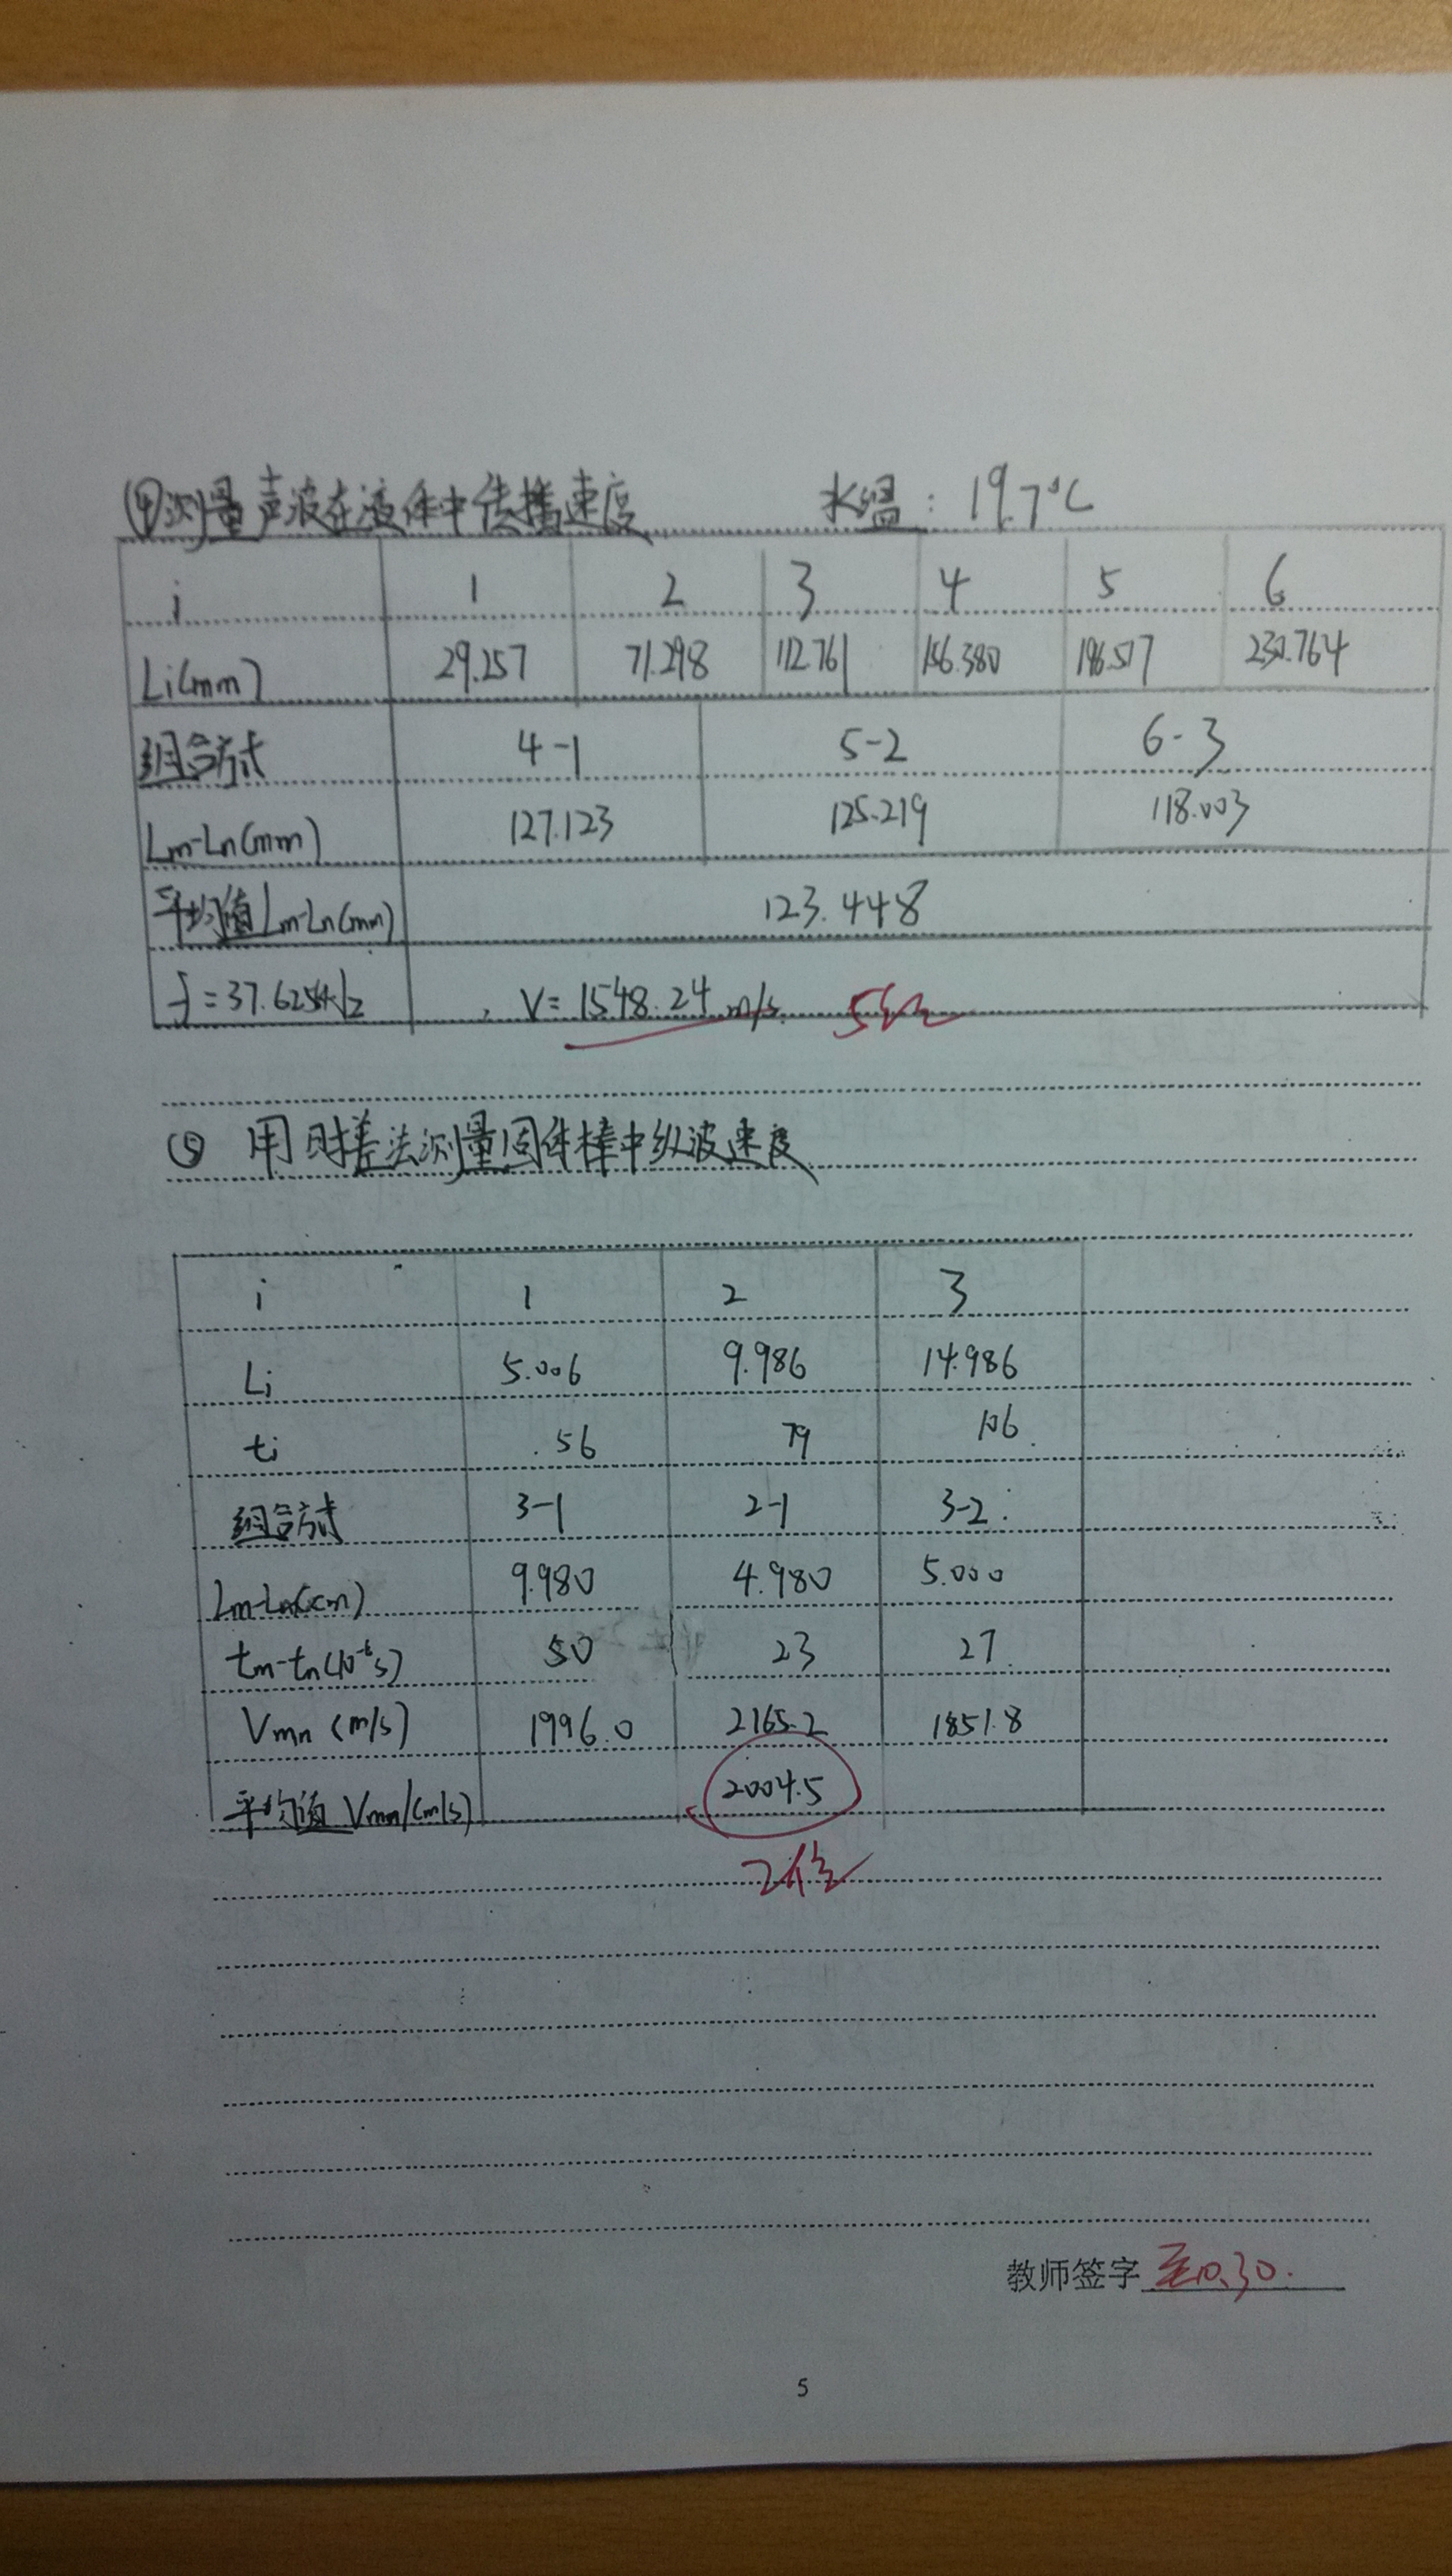 ④测量声波在液体中传播速度 水温: 19.7°C
i 1 2 3 4 5 6
Li(mm) 29.257 71.298 112.761 156.380 196.517 230.764
组合方式 4-1 5-2 6-3
Lm-Ln(mm) 127.123 125.219 118.003
平均值Lm-Ln(mm) 123.448
f=37.625kHz V=1548.24m/s 5位
⑤ 用时差法测量固体棒中纵波速度
i 1 2 3
Li 5.006 9.986 14.986
ti 56 79 106
组合方式 3-1 2-1 3-2
Lm-Ln(cm) 9.980 4.980 5.000
tm-tn(10⁻⁶s) 50 23 27
Vmn (m/s) 1996.0 2165.2 1851.8
平均值 Vmn/(m/s) 2004.5
2位
教师签字 10.30.
5